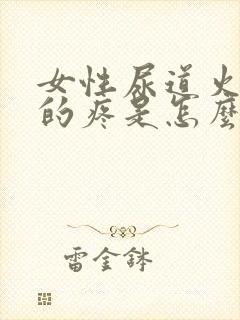 女性尿道火
的疼是怎麼
雷金鉢